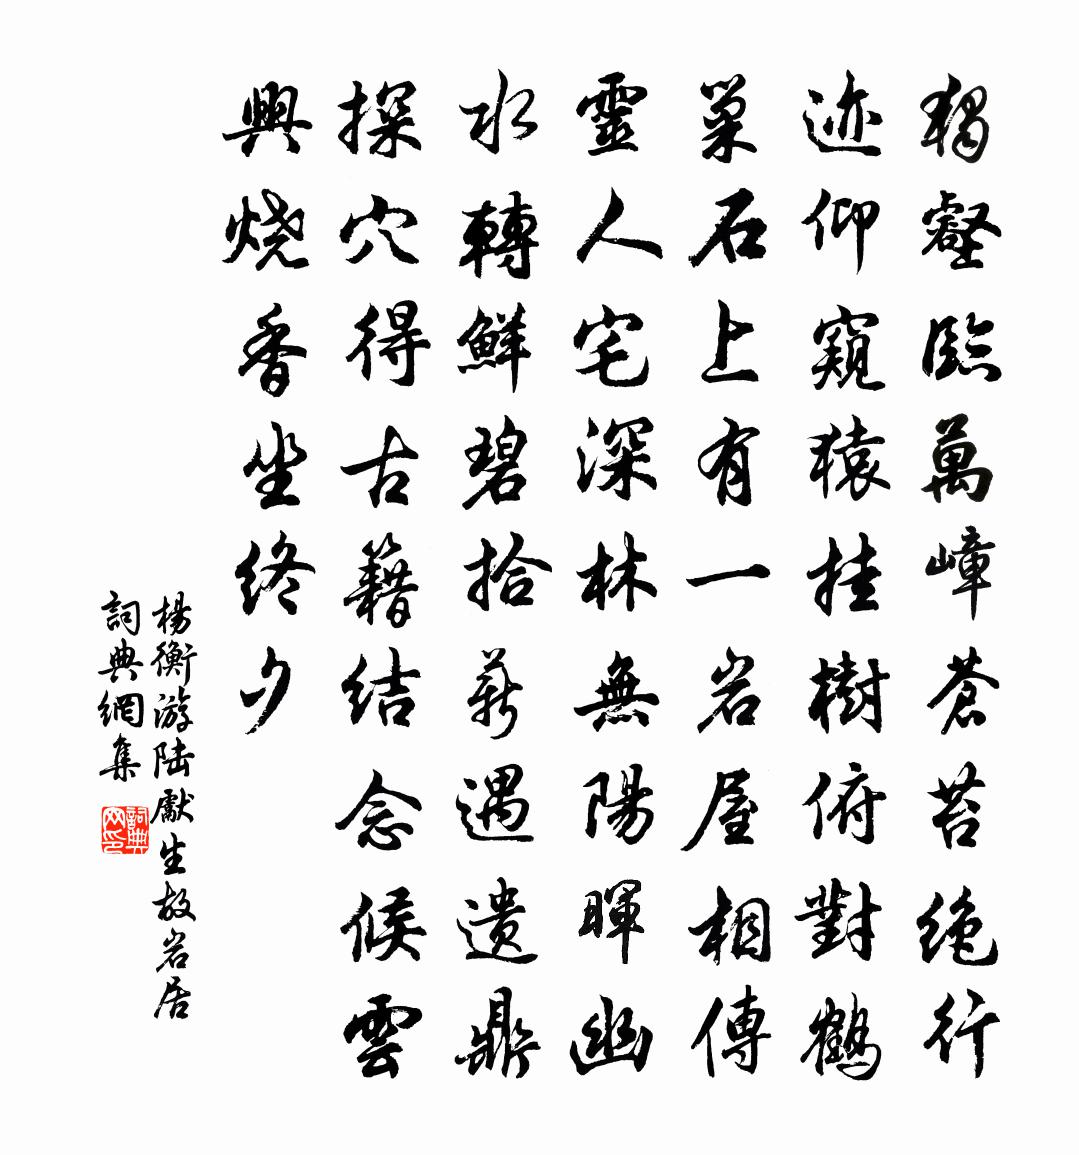 獨壑臨萬嶂蒼苔絶行
迹仰窺猿挂樹俯對鶴
巢石上有一岩屋相傳
靈人宅深林無陽暉幽
水轉鮮碧拾薪遇遺鼎
探穴得古籍结念候雲
興燒香坐终夕
楊衡游陆獻生故岩居
詞典網集
詞典
网印